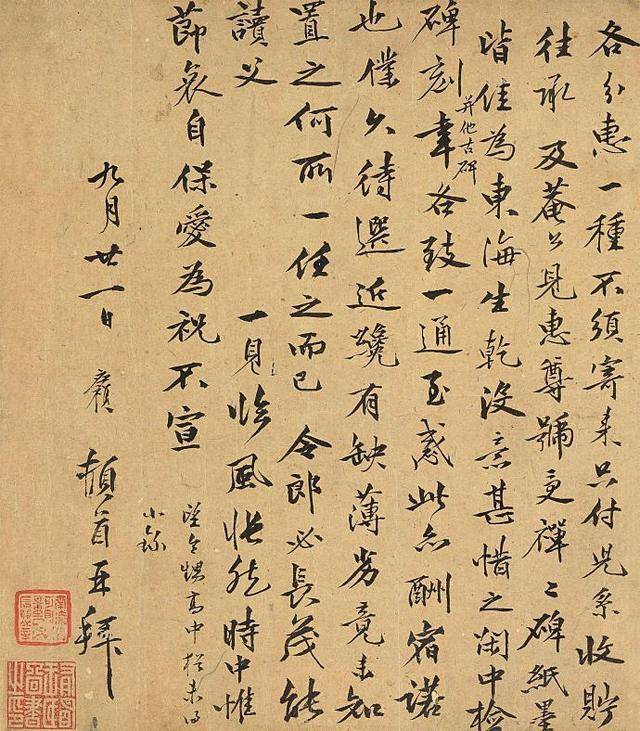 各分惠一種不須寄來只付兒系收貯
往承 及菴公見惠尊號受禪二碑紙墨
皆佳為東海生乾沒意甚惜之閑中檢
碑刻并他古碑幸各致一通至感此亦酬宿諾
也僕久待選近纔有缺薄劣竟未知
置之何所一任之而已 令郎必長茂能
讀父
一見臨風悵然時中惟
節哀自保愛為祝不宣
小錄
九月廿一日 頓首再拜